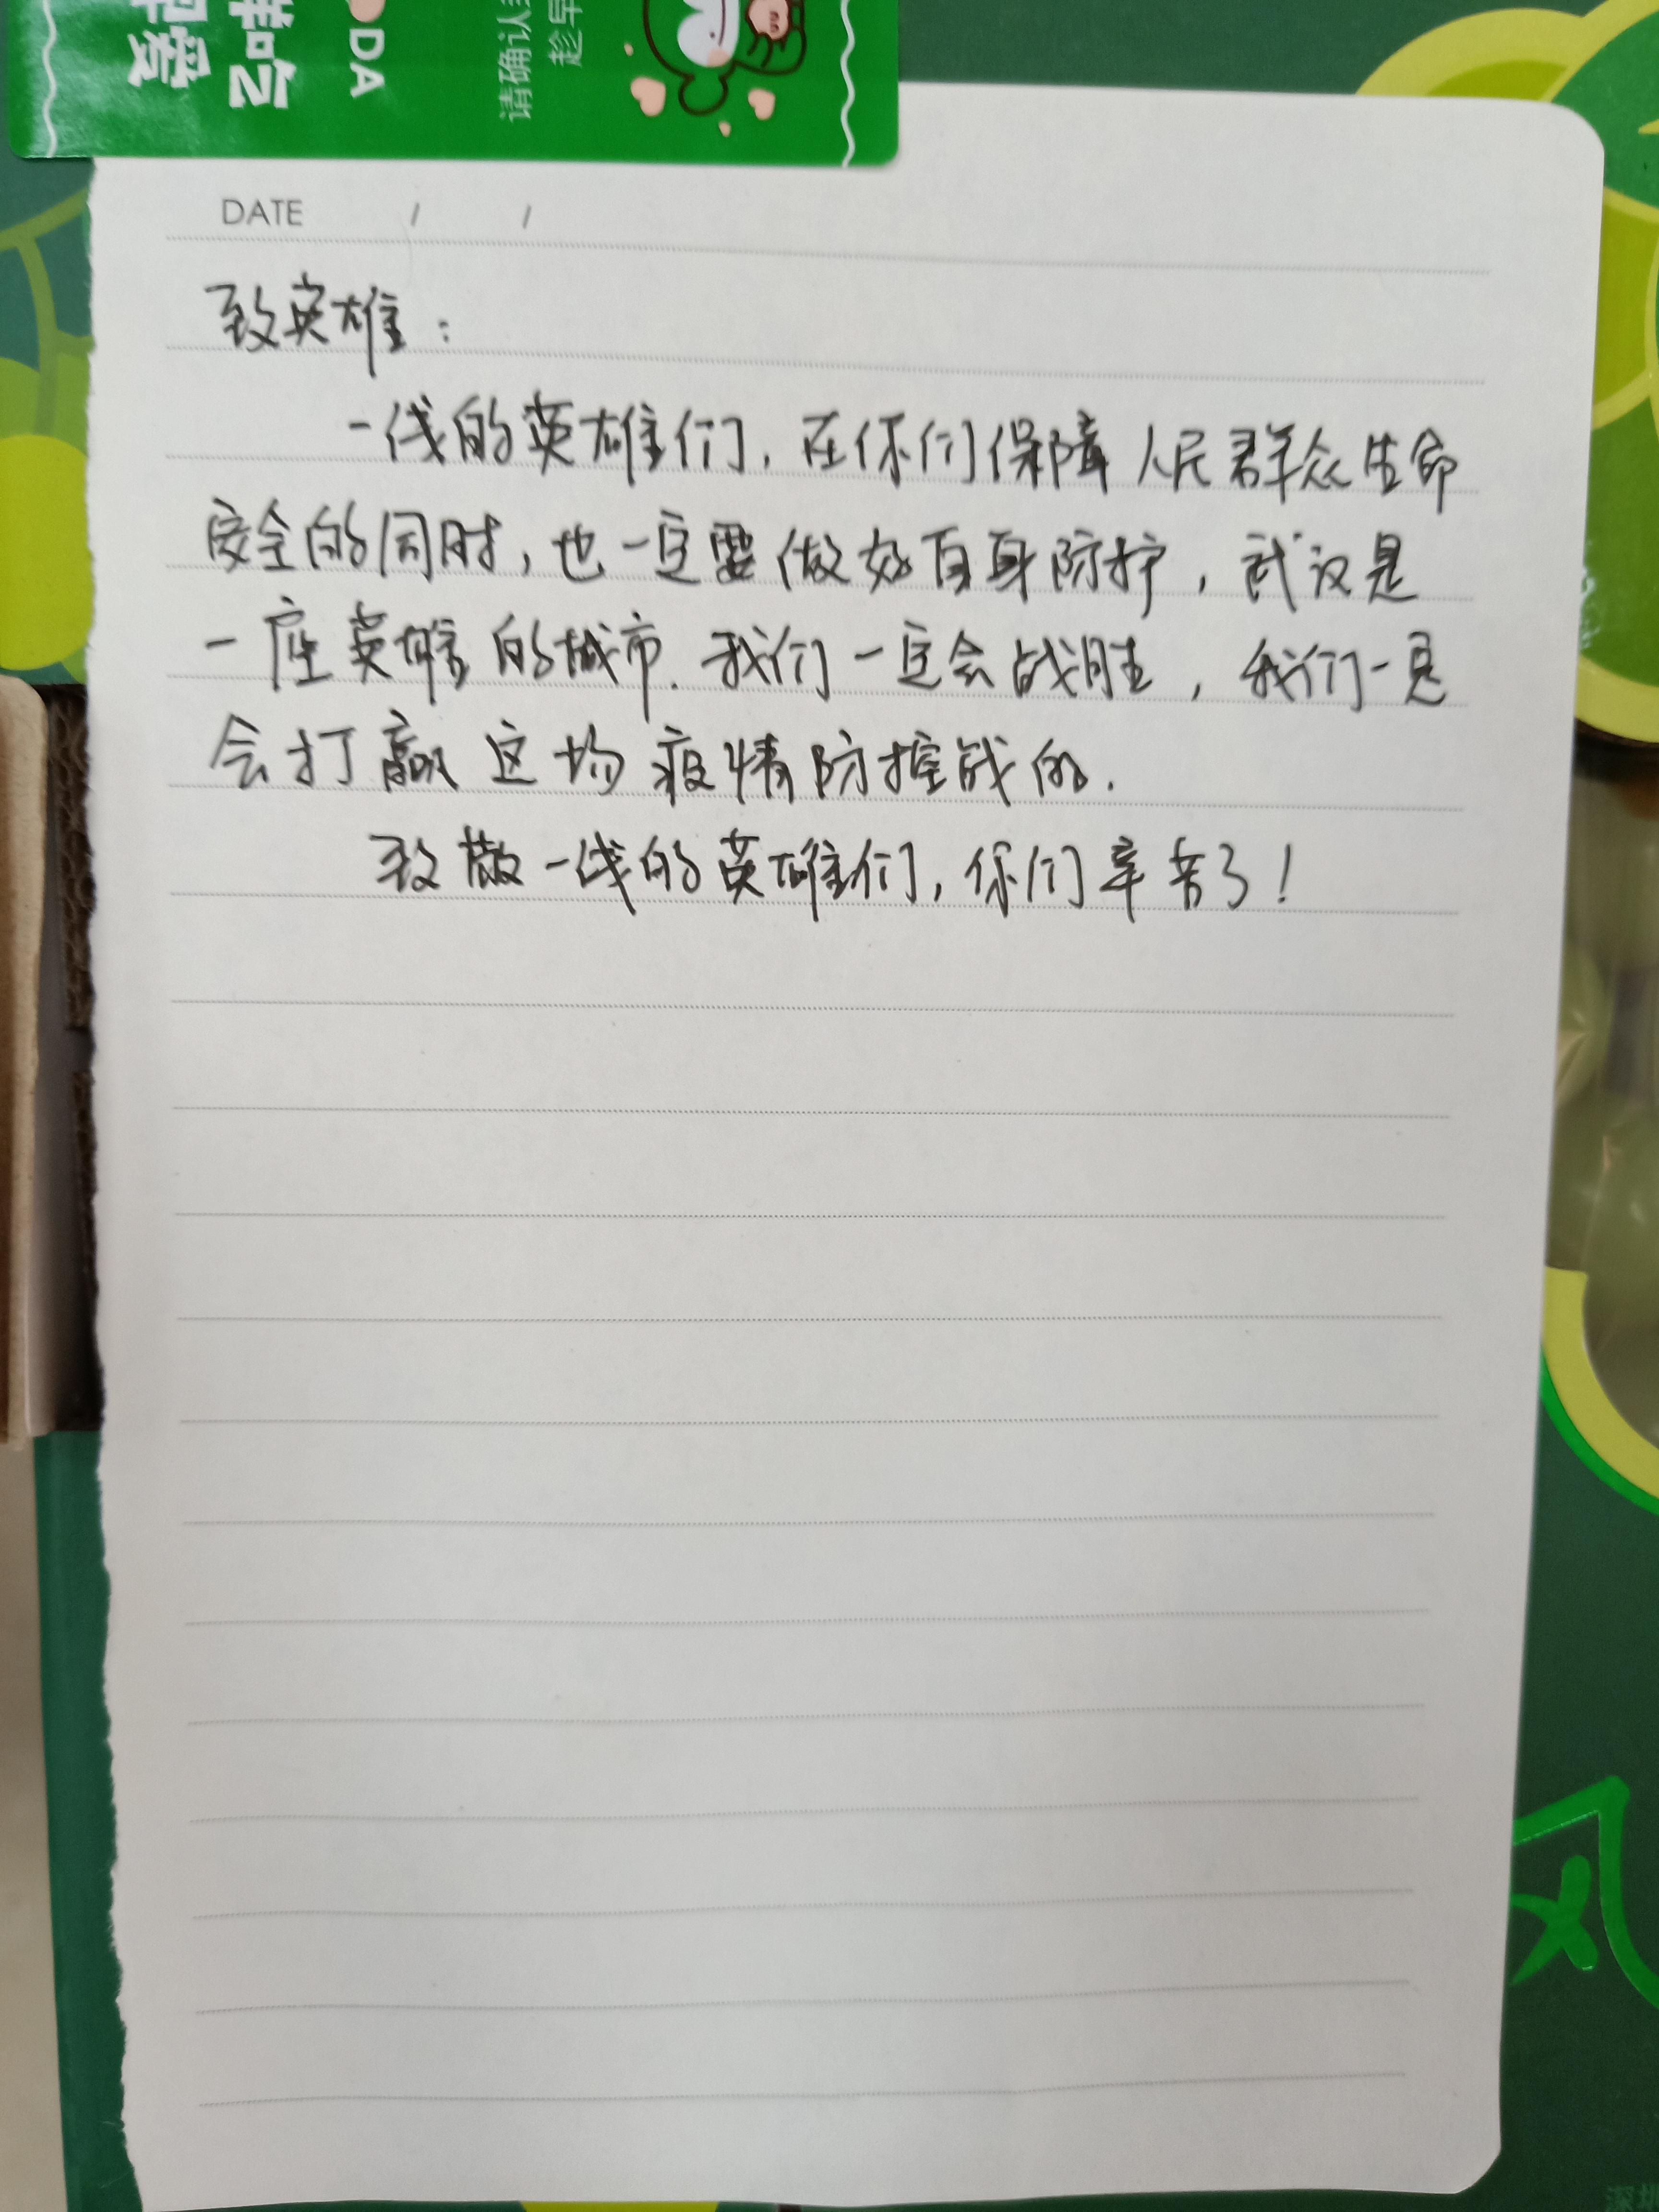 DA
请确认
趁早
DATE / /
致英雄：
一线的英雄们，在你们保障人民群众生命
安全的同时，也一定要做好自身防护，武汉是
一座英雄的城市.我们一定会战胜，我们一定
会打赢这场疫情防控战的.
致敬一线的英雄们，你们辛苦了！